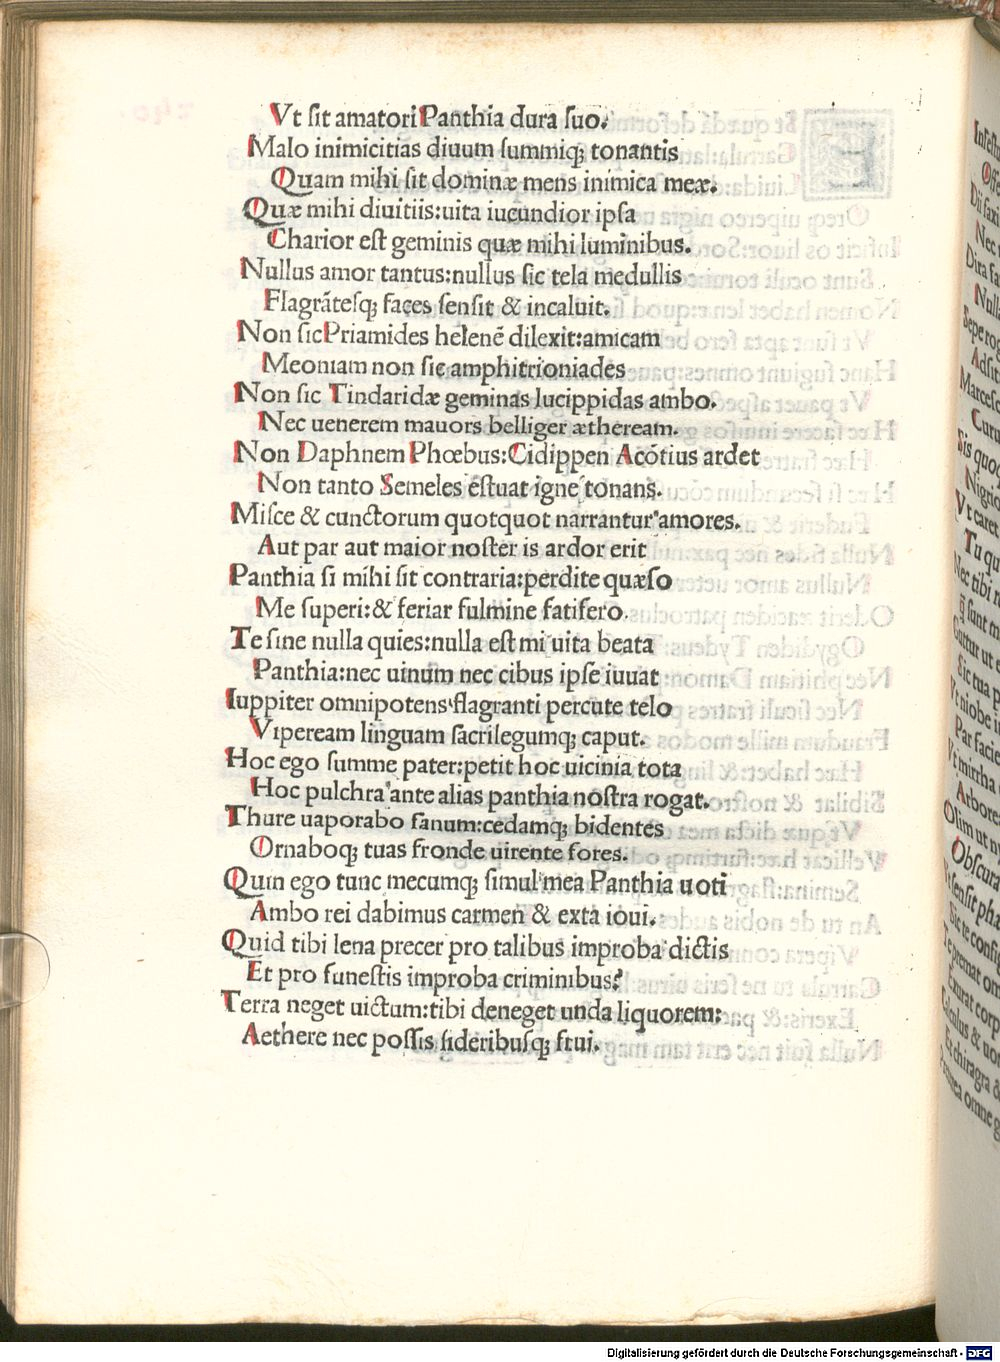 Vt sit amatori Panthia dura suo.
Malo inimicitias diuum summiq; tonantis
Quam mihi sit dominæ mens inimica meæ.
Quæ mihi diuitiis:uita iucundior ipsa
Charior est geminis quæ mihi luminibus.
Nullus amor tantus:nullus sic tela medullis
Flagrãtesq; faces sensit & incaluit.
Non sic Priamides helenẽ dilexit:amicam
Meoniam non sic amphitrioniades
Non sic Tindaridæ geminas lucippidas ambo.
Nec uenerem mauors belliger ætheream.
Non Daphnem Phœbus:Cidippen Acõtius ardet
Non tanto Semeles estuat igne tonans.
Misce & cunctorum quotquot narrantur amores.
Aut par aut maior noster is ardor erit
Panthia si mihi sit contraria:perdite quæso
Me superi:& feriar fulmine fatifero.
Te sine nulla quies:nulla est mi uita beata
Panthia:nec uinum nec cibus ipse iuuat
Iuppiter omnipotens flagranti percute telo
Vipeream linguam sacrilegumq; caput.
Hoc ego summe pater:petit hoc uicinia tota
Hoc pulchra ante alias panthia nostra rogat.
Thure uaporabo fanum:cedamq; bidentes
Ornaboq; tuas fronde uirente fores.
Quin ego tunc mecumq; simul mea Panthia uoti
Ambo rei dabimus carmen & exta ioui.
Quid tibi lena precer pro talibus improba dictis
Et pro funestis improba criminibus?
Terra neget uictum:tibi deneget unda liquorem:
Aethere nec possis sideribusq; frui.
Digitalisierung gefördert durch die Deutsche Forschungsgemeinschaft - DFG